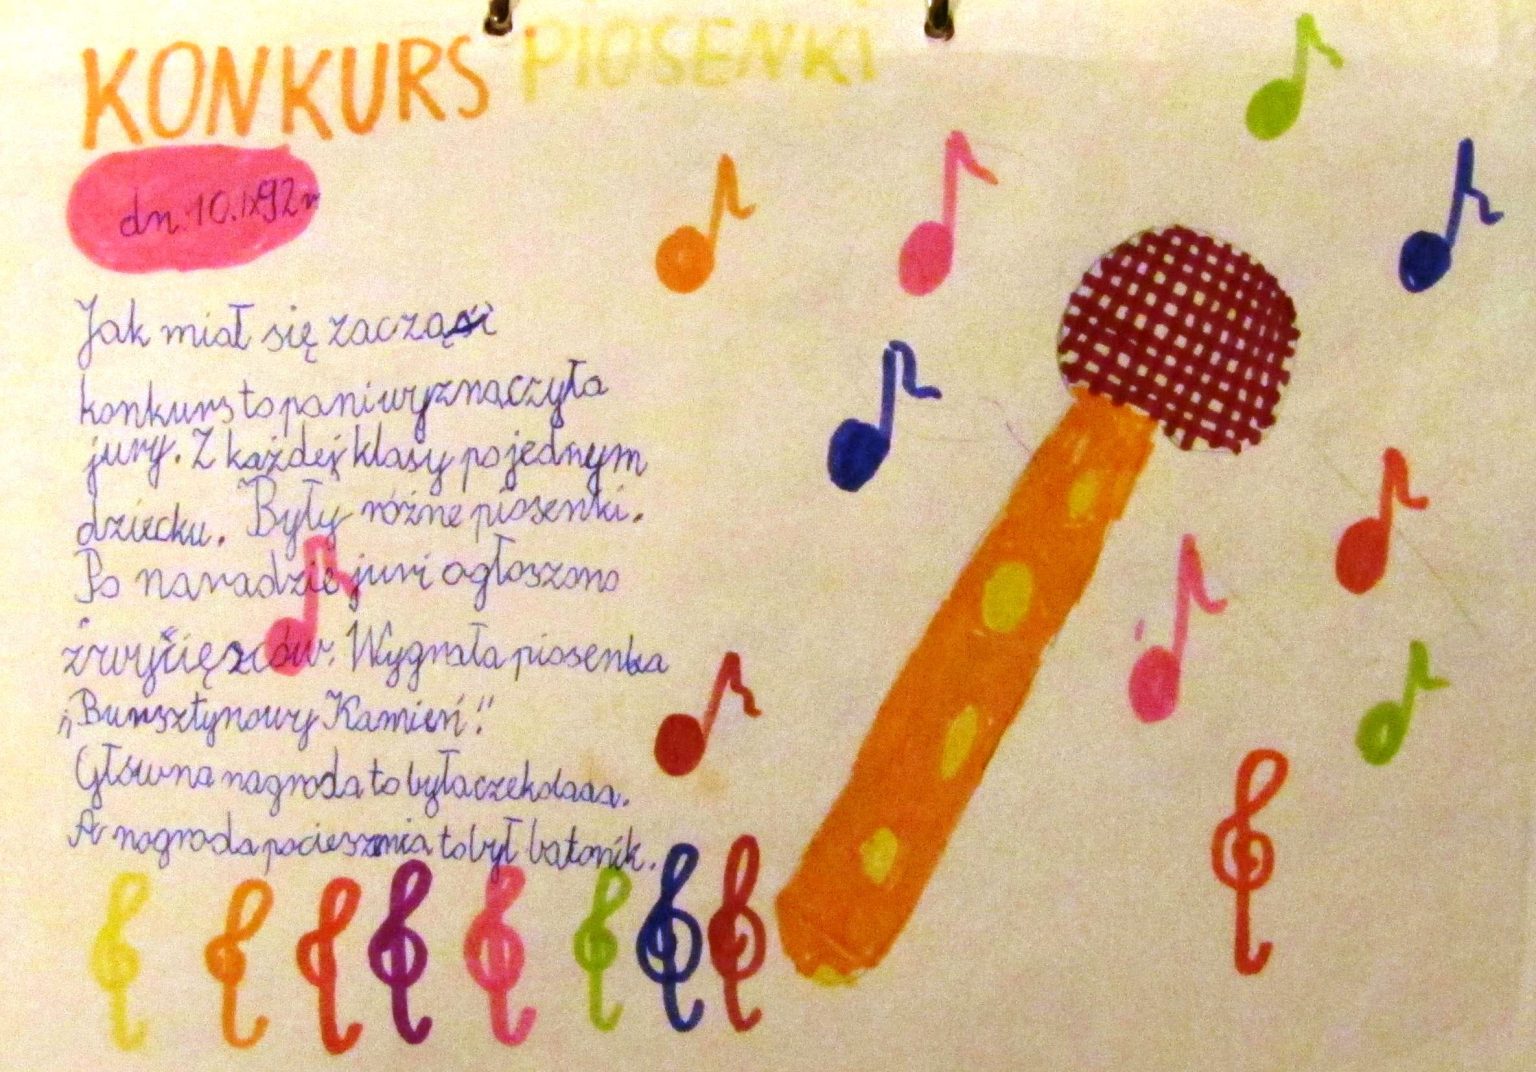 KONKURS PIOSENKI
dn. 10.IX92r
Jak miał się zacząść
konkurs to pani wyznaczyła
jury. Z każdej klasy po jednym
dziecku. Były różne piosenki.
Po naradzie juri ogłoszono
zwycięzców. Wygrała piosenka
„Bursztynowy Kamień"
Główna nagroda to była czekolaaa.
A nagroda pociesznia to był batonik.